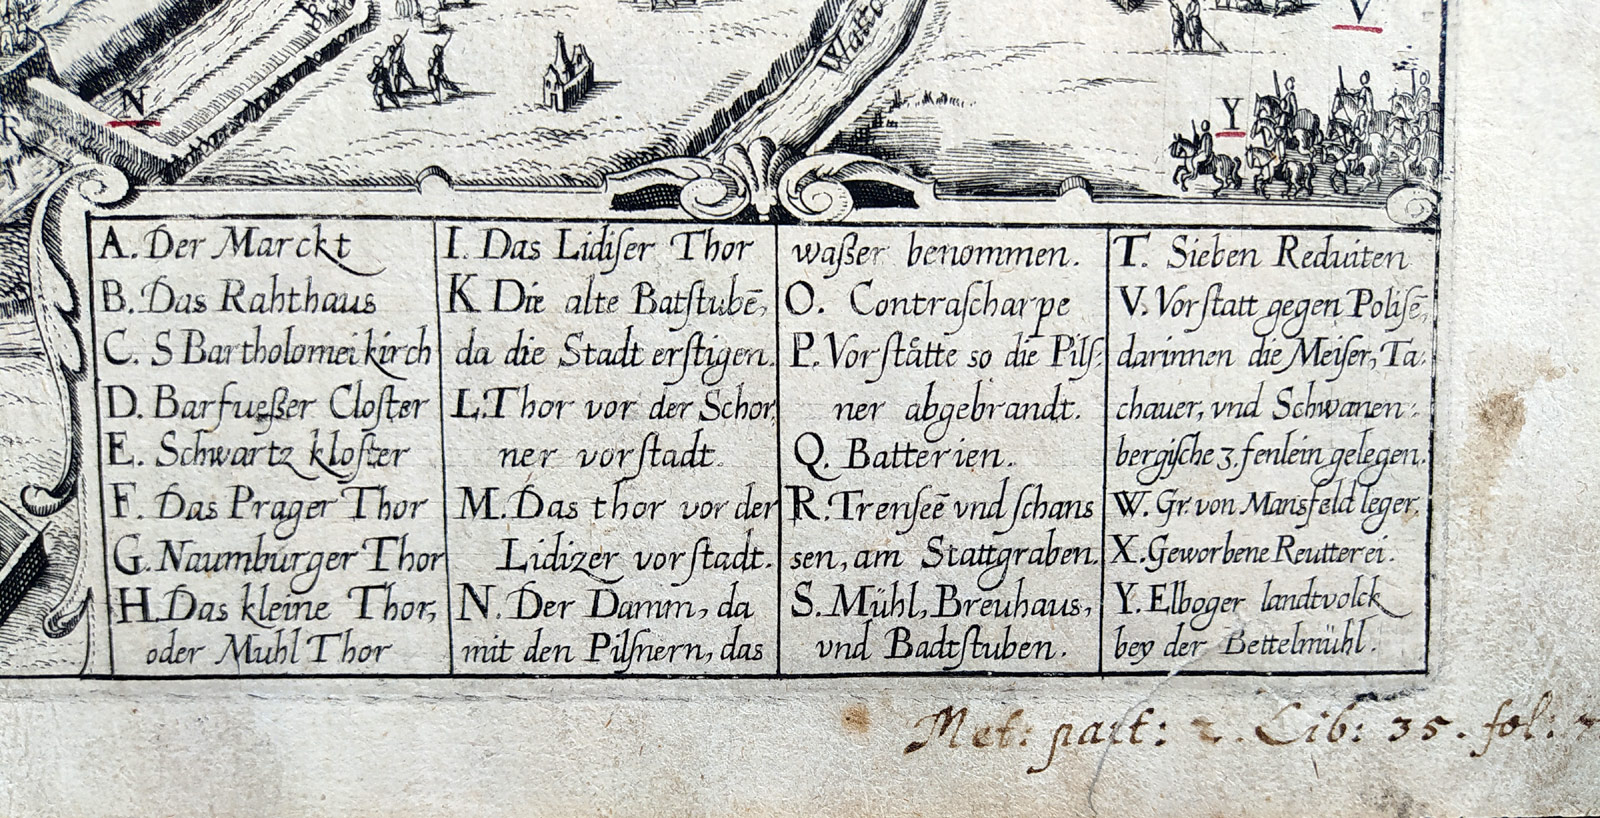 N
V
Y
A. Der Marckt
B. Das Rahthaus
C. S Bartholomei kirch
D. Barfueßer Cloſter
E. Schwartz kloſter
F. Das Prager Thor
G. Naumburger Thor
H. Das kleine Thor,
oder Muhl Thor
I. Das Lidiſer Thor
K Die alte Batſtubē,
da die Stadt erſtigen.
L. Thor vor der Schor,
ner vorſtadt.
M. Das thor vor der
Lidizer vorſtadt.
N. Der Damm, da
mit den Pilſnern, das
waßer benommen.
O. Contraſcharpe
P. Vorſtåtte so die Pilſ:
ner abgebrandt.
Q. Batterien.
R. Trenſeē vnd ſchans
sen, am Stattgraben.
S. Mühl, Breuhaus,
vnd Badtſtuben.
T. Sieben Reduiten
V. Vorſtatt gegen Poliſē,
darinnen die Meiſer, Ta:
chauer, vnd Schwanen:
bergiſche 3. fenlein gelegen.
W. Gr. von Mansfeld leger.
X. Geworbene Reutterei.
Y. Elboger landtvolck
bey der Bettelmühl.
Met: paſt: 2. Lib: 35. fol: